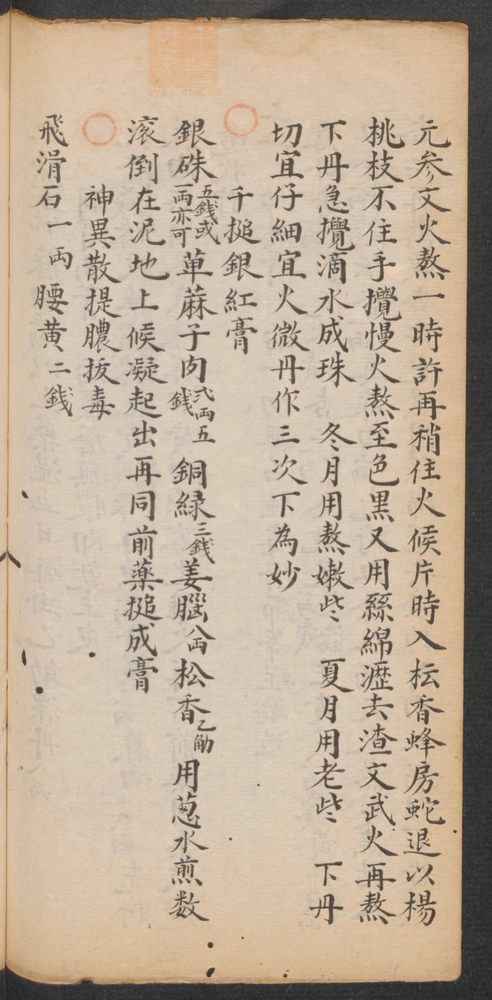 元参文火熬一時許再稍住火候片時入枟香蜂房蛇退以楊
桃枝不住手攪慢火熬至色黑又用絲綿瀝去渣文武火再熬
下丹急攪滴水成珠 冬月用熬嫩些 夏月用老些 下丹
切宜仔細宜火微丹作三次下為妙
千搥銀紅膏
銀硃五錢或一両亦可萆蔴子肉弍両五錢 銅綠三錢姜腦八両松香乙觔 用葱水煎数
滚倒在泥地上候凝起出再同前藥搥成膏
神異散提膿拔毒
飛滑石一両腰黄二錢